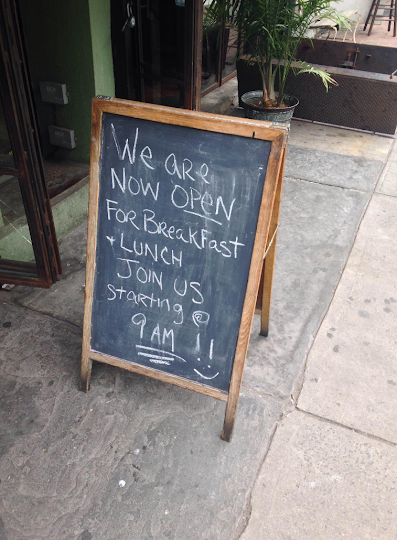 We are
Now OPEN
For BreakFast
+ LUNCH
JOIN US
starting @
9 AM !!